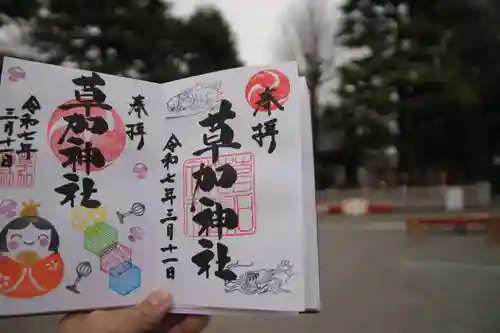 奉拝
草加神社
令和七年三月十一日
奉拝
草加神社
令和七年
三月十一日